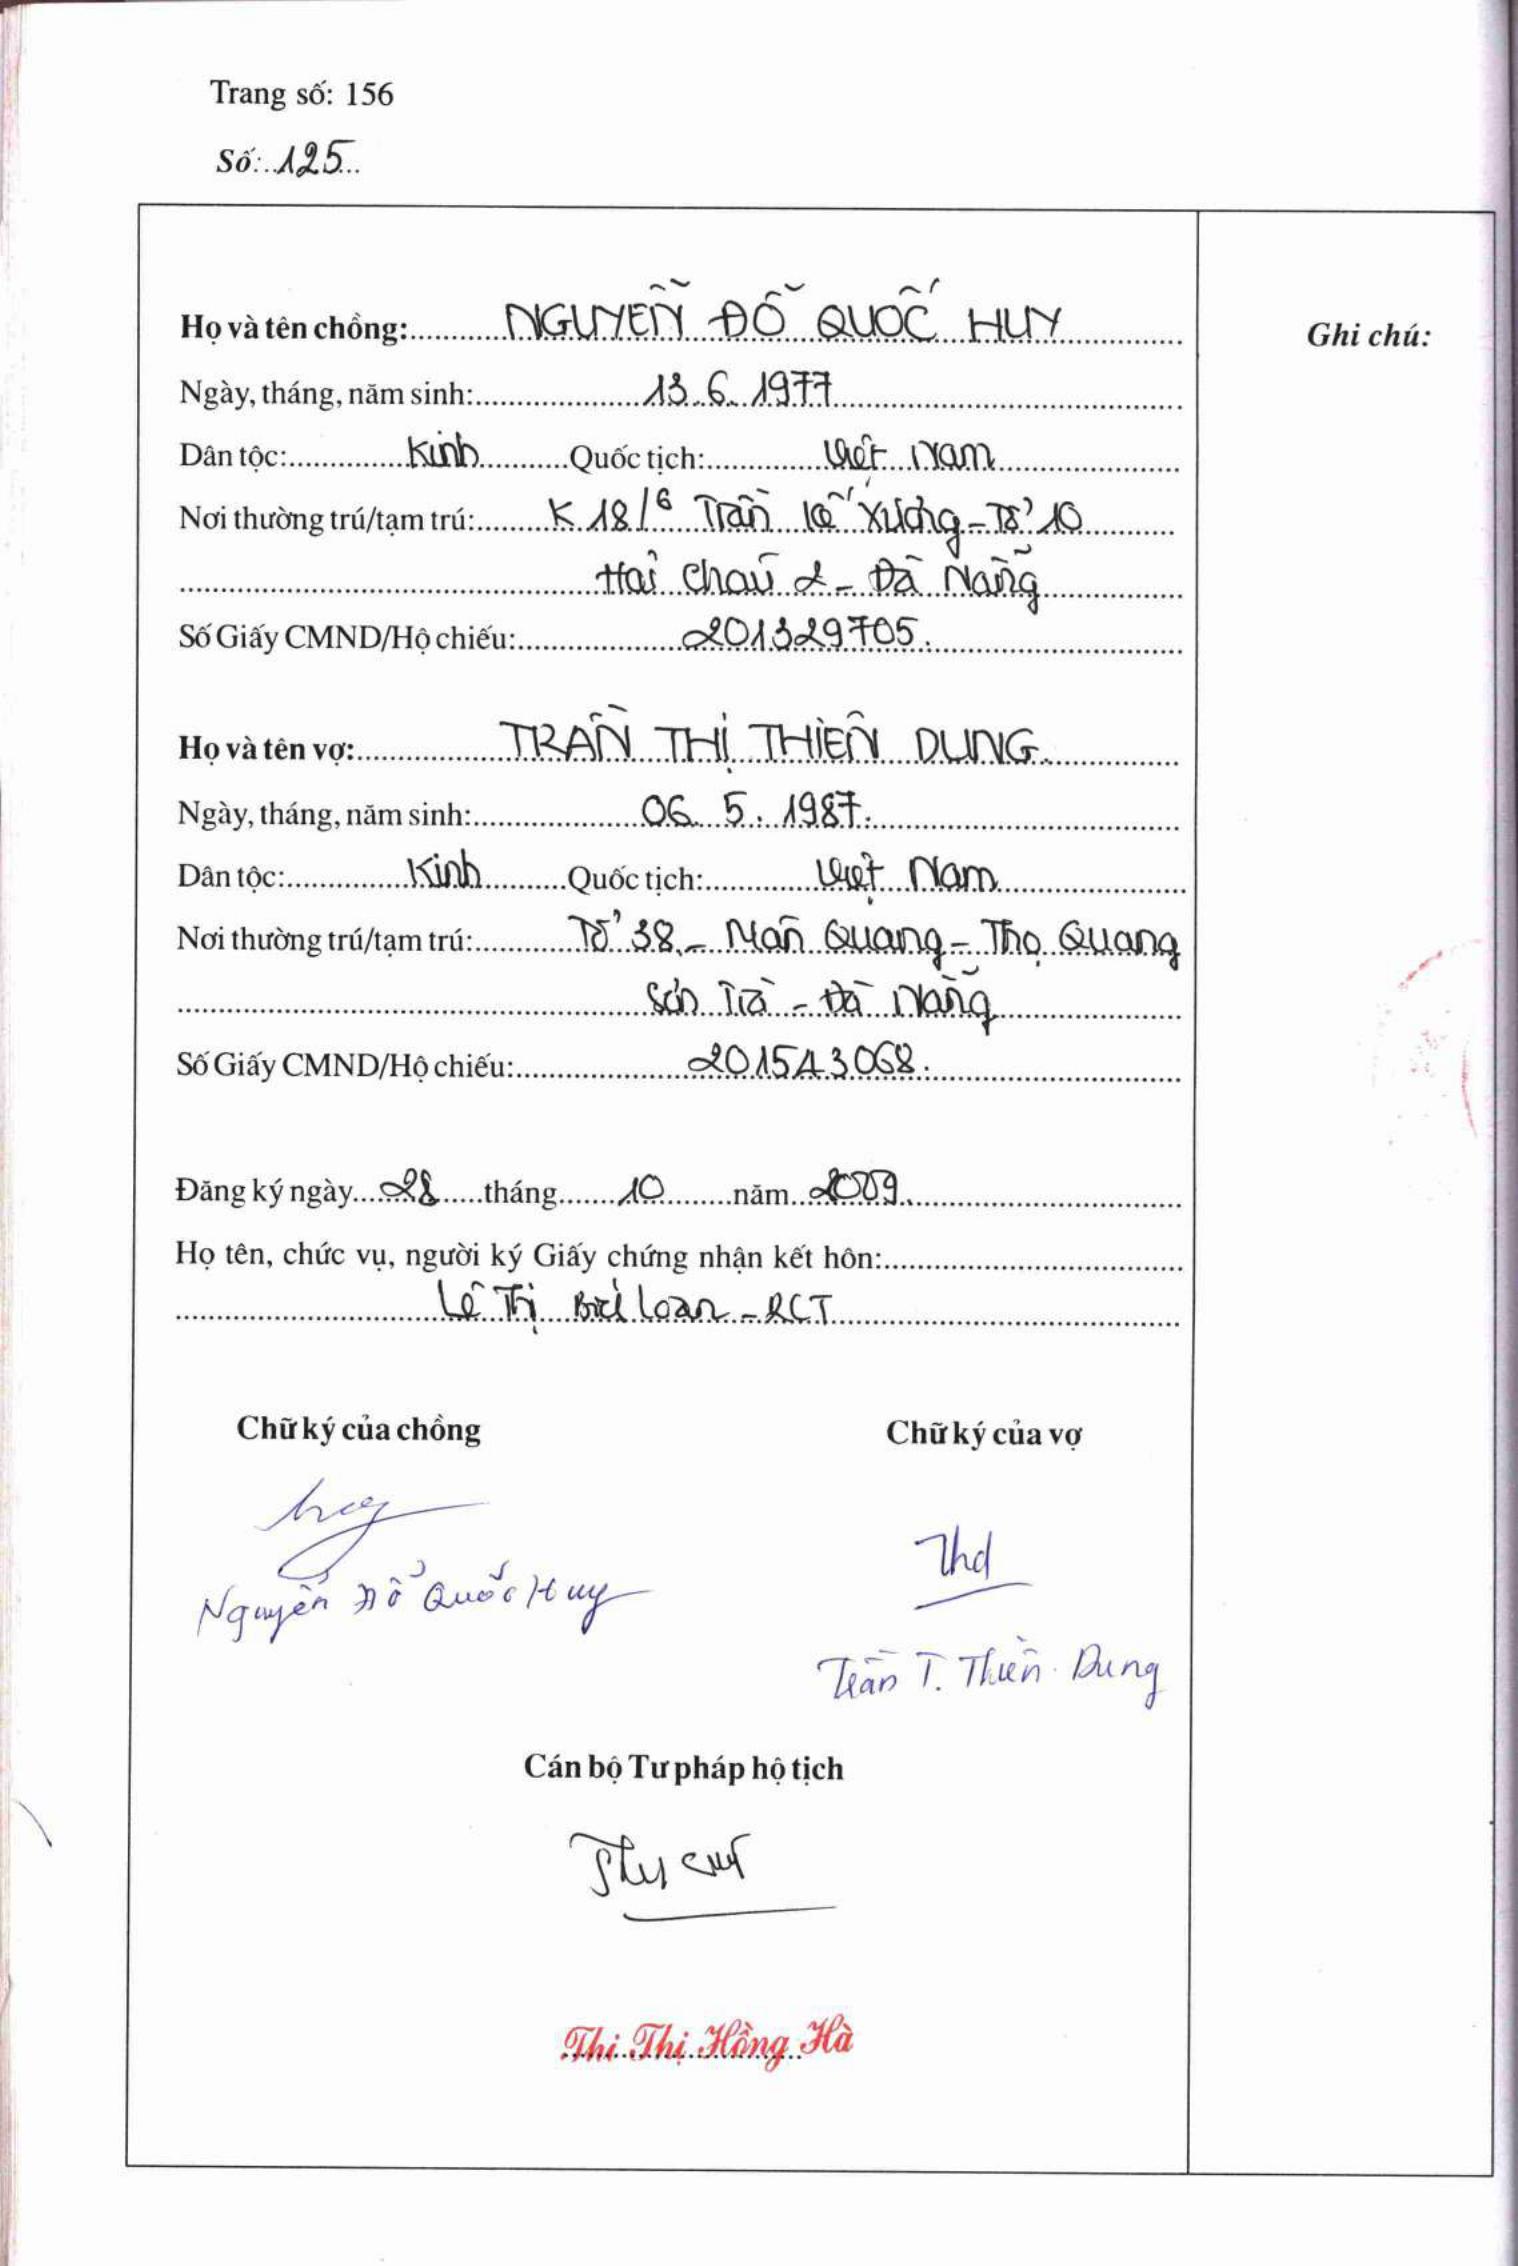 Trang số: 156
Số: 125
Họ và tên chồng: NGUYỄN ĐỖ QUỐC HUY
Ghi chú:
Ngày, tháng, năm sinh: 13.6.1977
Dân tộc: Kinh Quốc tịch: Việt Nam
Nơi thường trú/tạm trú: K 18/6 Trần Kế Xương - Tổ 10
Hải Châu 2 - Đà Nẵng
Số Giấy CMND/Hộ chiếu: 201329705.
Họ và tên vợ: TRẦN THỊ THIÊN DUNG.
Ngày, tháng, năm sinh: 06.5.1987.
Dân tộc: Kinh Quốc tịch: Việt Nam
Nơi thường trú/tạm trú: Tổ 38 - Mân Quang - Thọ Quang
Sơn Trà - Đà Nẵng
Số Giấy CMND/Hộ chiếu: 201543068.
Đăng ký ngày 28 tháng 10 năm 2009.
Họ tên, chức vụ, người ký Giấy chứng nhận kết hôn:
Lê Thị Loan -
Chữ ký của chồng Chữ ký của vợ
Nguyễn Đỗ Quốc Huy
Trần T. Thiên Dung
Cán bộ Tư pháp hộ tịch
Thi Thị Hồng Hà